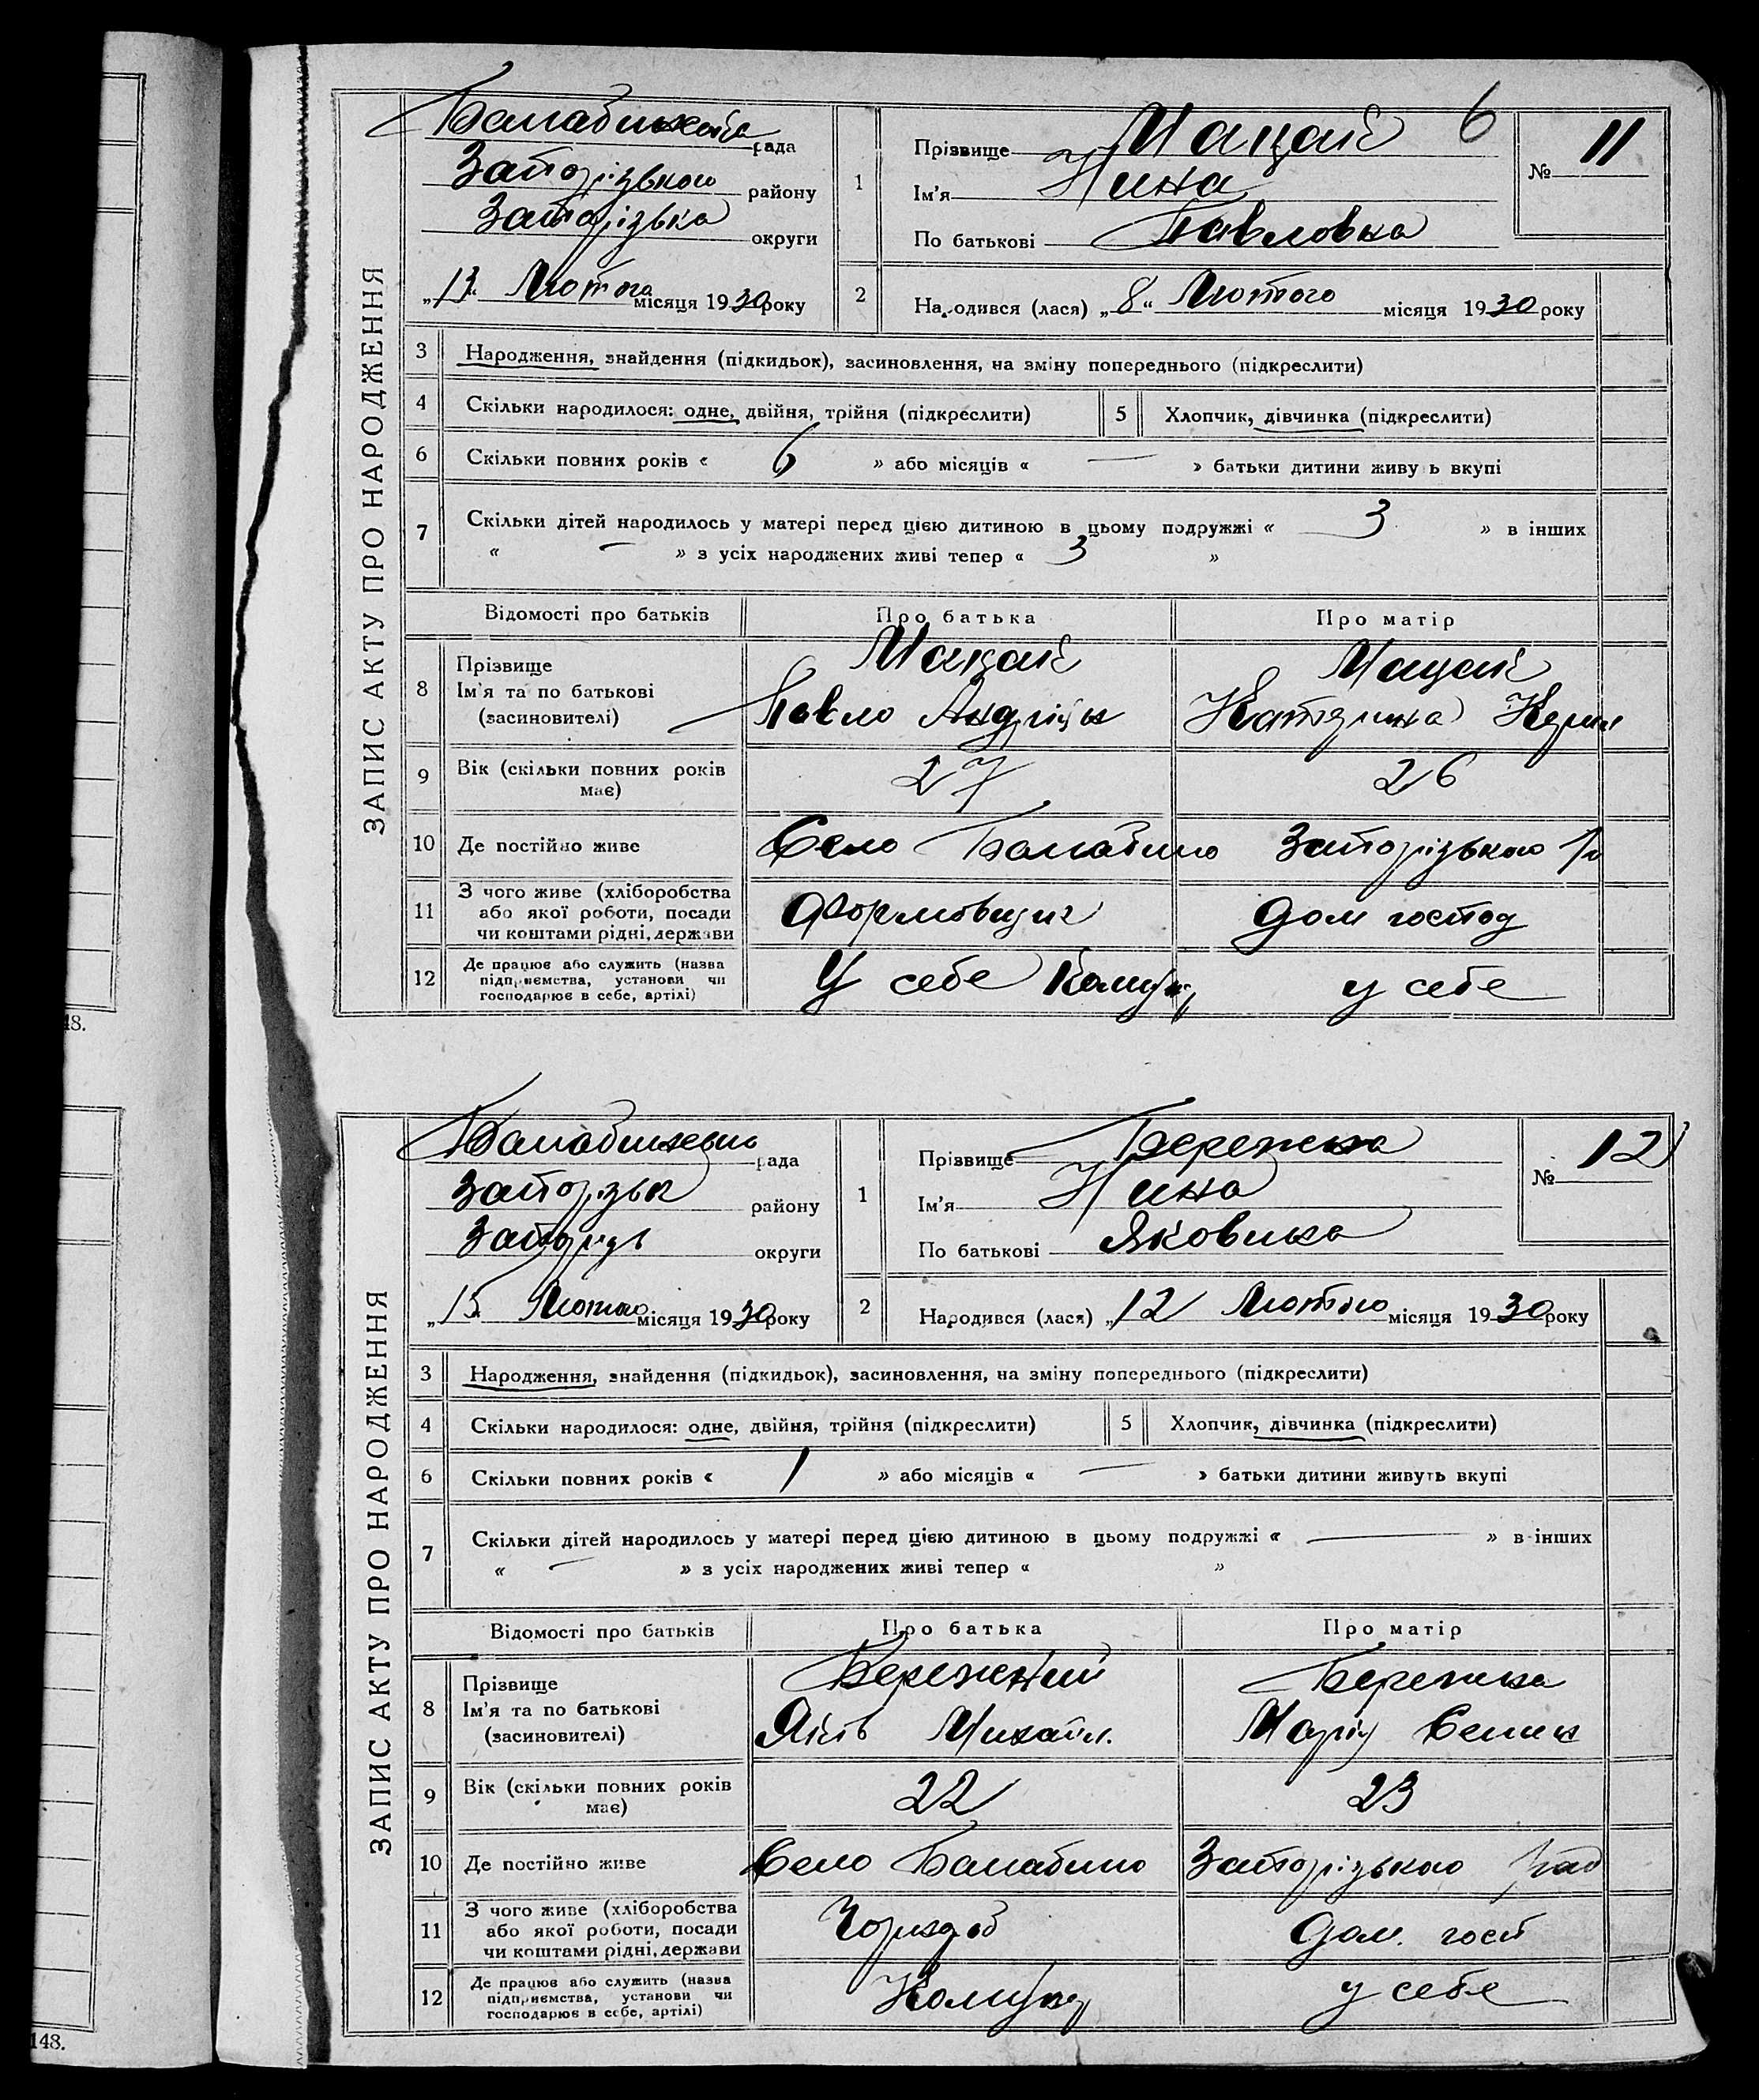 6
Балабинська рада
Запорізького району
Запорізька округи
„13“ Лютого місяця 1930 року
1 Прізвище Мацай
Ім'я Нина
По батькові Павловна
№ 11
2 Народився (лася) „8“ Лютого місяця 1930 року
ЗАПИС АКТУ ПРО НАРОДЖЕННЯ
3 Народження, знайдення (підкидьок), засиновлення, на зміну попереднього (підкреслити)
4 Скільки народилося: одне, двійня, трійня (підкреслити) 5 Хлопчик, дівчинка (підкреслити)
6 Скільки повних років « 6 » або місяців « — » батьки дитини живу ь вкупі
7 Скільки дітей народилось у матері перед цією дитиною в цьому подружжі « 3 » в інших
« — » з усіх народжених живі тепер « 3 »
Відомості про батьків Про батька Про матір
8 Прізвище Мацай Мацай
Ім'я та по батькові Павло Андрійов Катерина
(засиновителі)
9 Вік (скільки повних років 27 26
має)
10 Де постійно живе Село Балабино Запорізького р
11 З чого живе (хліборобства
або якої роботи, посади Формовщик дом господ
чи коштами рідні, держави
12 Де працює або служить (назва
підприємства, установи чи У себе Комун у себе
господарює в себе, артілі)
18.
Балабинська рада
Запорізьк району
Запорізь округи
„15 Лютого місяця 1930 року
1 Прізвище Бережна
Ім'я Нина
По батькові Яковивна
№ 12
2 Народився (лася) „12 Лютого місяця 1930 року
ЗАПИС АКТУ ПРО НАРОДЖЕННЯ
3 Народження, знайдення (підкидьок), засиновлення, на зміну попереднього (підкреслити)
4 Скільки народилося: одне, двійня, трійня (підкреслити) 5 Хлопчик, дівчинка (підкреслити)
6 Скільки повних років « 1 » або місяців « — » батьки дитини живуть вкупі
7 Скільки дітей народилось у матері перед цією дитиною в цьому подружжі « — » в інших
« — » з усіх народжених живі тепер « »
Відомості про батьків Про батька Про матір
8 Прізвище Бережний Бережна
Ім'я та по батькові Яків Михайл. Марія
(засиновителі)
9 Вік (скільки повних років 22 23
має)
10 Де постійно живе Село Балабино Запорізького рай
11 З чого живе (хліборобства
або якої роботи, посади Чорнороб дом. госп
чи коштами рідні, держави
12 Де працює або служить (назва
підприємства, установи чи Комун у себе
господарює в себе, артілі)
148.